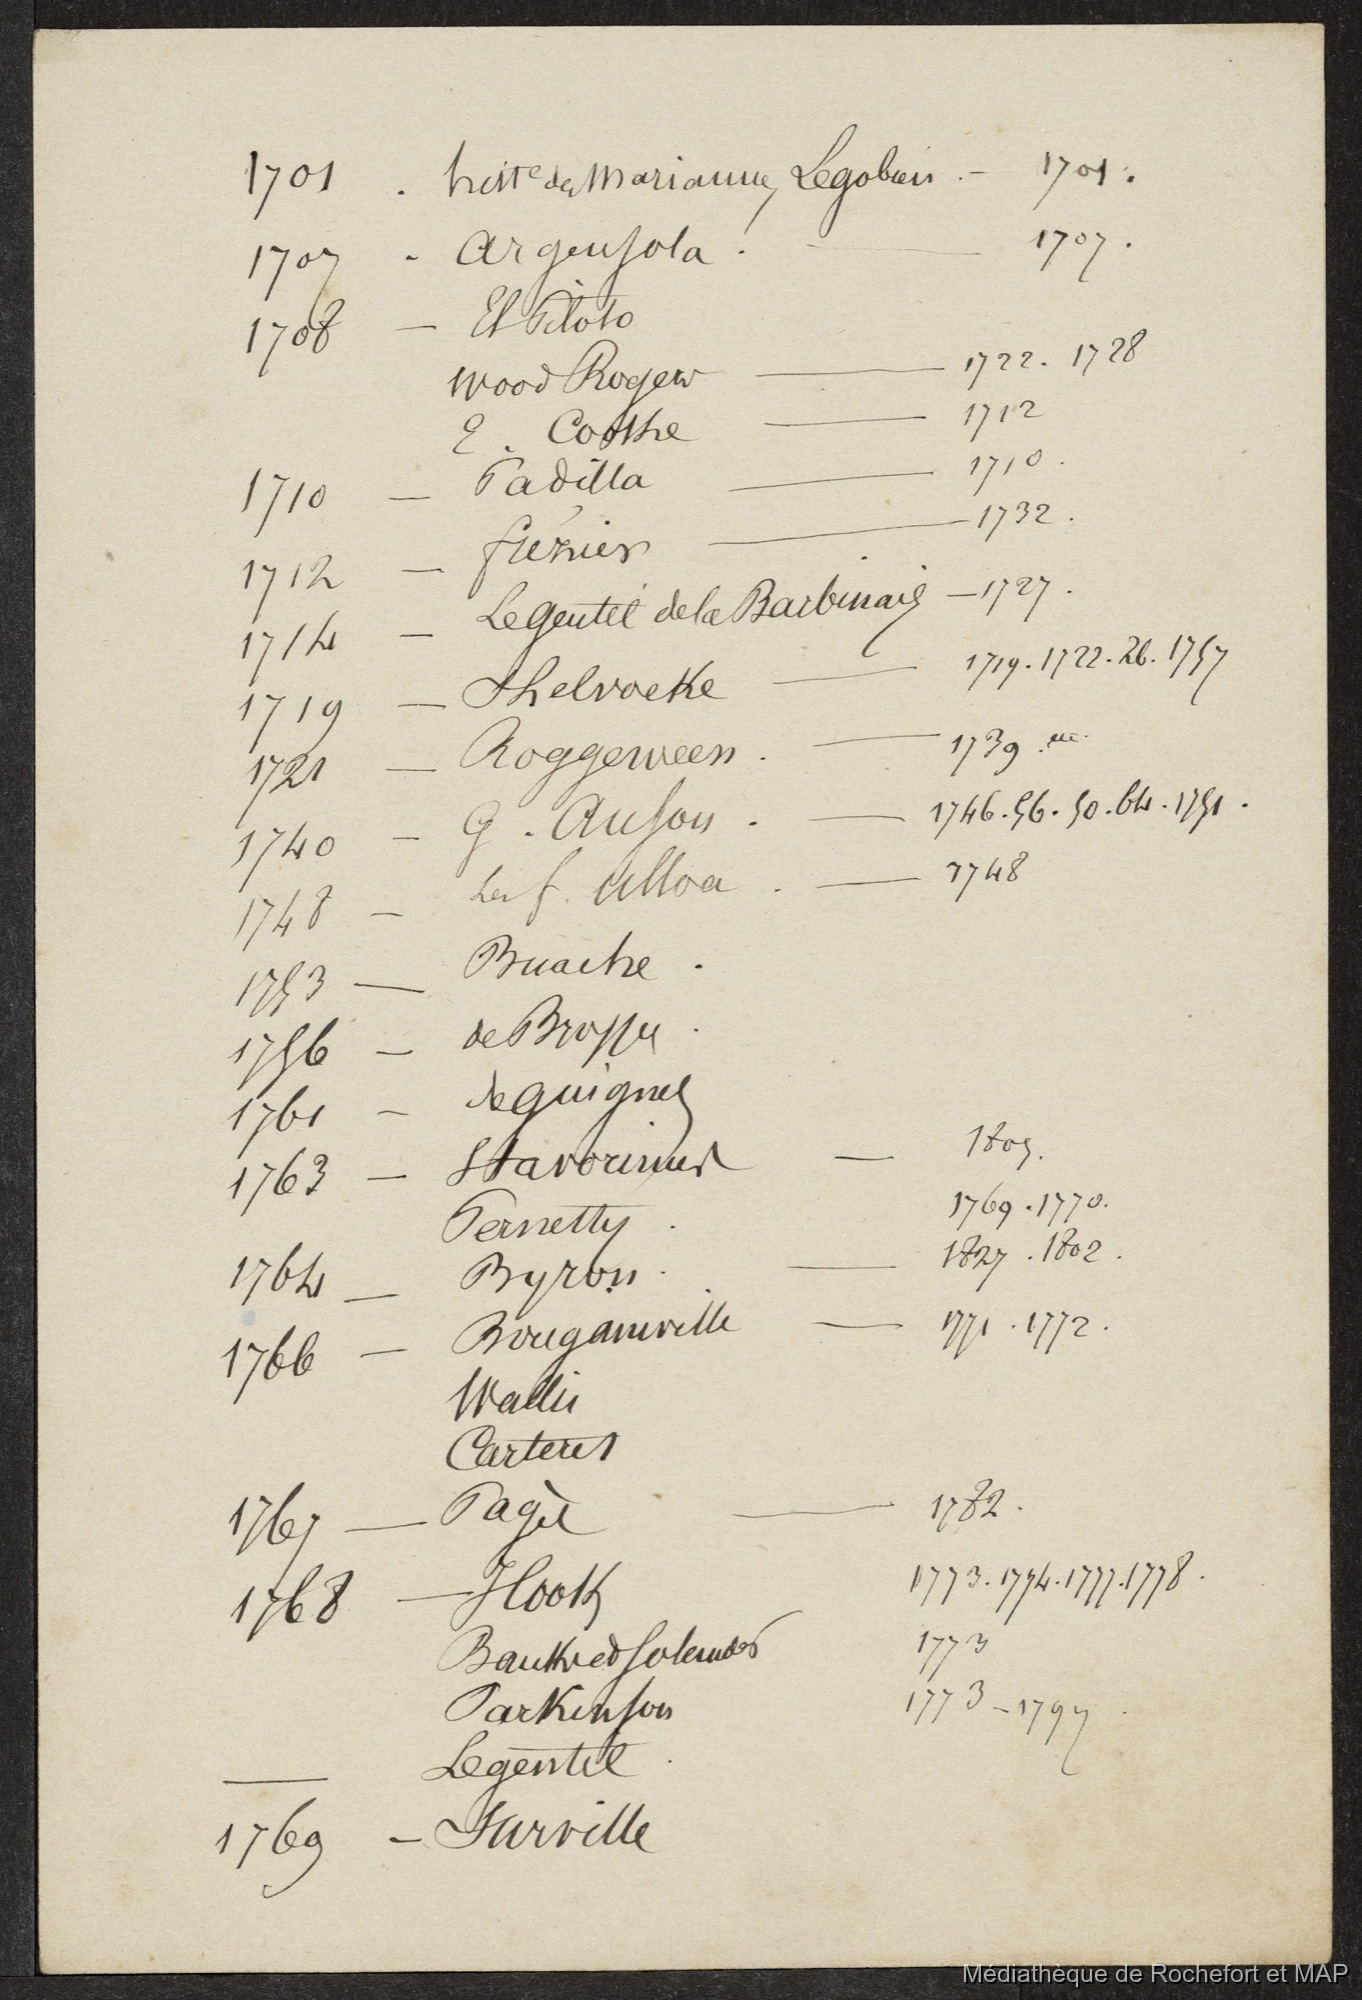 1701 . histre des Mariannes, Legobien . - 1701 .
1707 - Argensola . — 1707 .
1708 — El Piloto
Wood Rogers — 1722 . 1728
E . Cooke — 1712
1710 — Padilla — 1710 .
1712 — frézier — 1732 .
1714 — Legentil de la Barbinais — 1727 .
1719 — Shelvocke — 1719 . 1722 . 26 . 1757
1721 — Roggeween . — 1739 .
1740 - G . Anson . — 1746 . 56 . 50 . 64 . 1751 .
1748 — Ulloa . — 1748
1753 — Buache .
1756 — de Brosses .
1761 — de Guignes
1763 — Stavorinus — 1805 .
Pernetty . 1769 . 1770 .
1764 — Byron . — 1827 . 1802 .
1766 — Bougainville — 1771 . 1772 .
Wallis
Carteret
1767 — Pagès — 1782 .
1768 — J Cook 1773 . 1774 . 1777 . 1778 .
Banks et Solander 1773
Parkinson 1773 - 1797 .
— Legentil .
1769 - Surville
Médiathèque de Rochefort et MAP